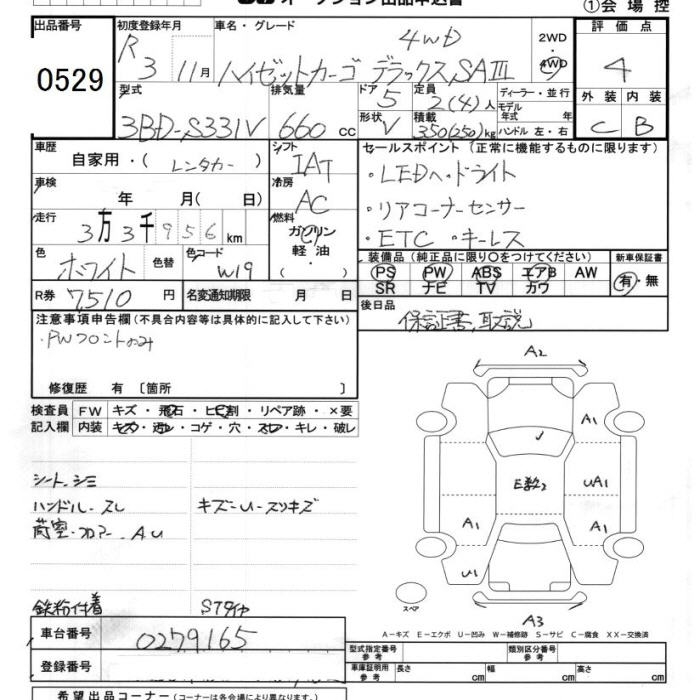 ①会場控
出品番号 初度登録年月 車名・グレード 評価点
0529 R3 11月 ハイゼットカーゴ デラックスSAⅢ 4WD 2WD・4WD 4
型式 排気量 ドア 5 定員 2(4)人 ディーラー・並行 外装 内装
モデル年式 年式
3BD-S331V 660cc 形状 V 積載 350(250)kg ハンドル 左・右 C B
車歴 自家用・(レンタカー) シフト IAT セールスポイント(正常に機能するものに限ります)
車検 年 月(日) 冷房 AC ・LEDヘッドライト
走行 3万3千956km 燃料 ガソリン・軽油・( ) ・リアコーナーセンサー
・ETC ・キーレス
色 ホワイト 色替 色コード W19 装備品(純正品に限り○をつけてください) 新車保証書
PS PW ABS エアB AW 有・無
SR ナビ TV カワ
R券 7,510円 名変通知期限 月 日 後日品 保証書、取説
注意事項申告欄(不具合内容等は具体的に記入して下さい)
・PWフロントのみ
修復歴 有〔箇所 〕
検査員記入欄 FW キズ・飛石・ヒビ割・リペア跡・×要
内装 キズ・汚レ・コゲ・穴・スレ・キレ・破レ
シート、シミ
ハンドル、スレ キズ-U-スリキズ
荷室・フロアー AU
鉄粉付着 STタイヤ
A2
A1
E数2 UA1
A1 A1
U1
スペア A3
A-キズ E-エクボ U-凹み W-補修跡 S-サビ C-腐食 XX-交換済
車台番号 0279165
型式指定番号 参考 類別区分番号 参考
登録番号
車庫証明用 参考 長さ cm 幅 cm 高さ cm
希望出品コーナー(コーナーは各会場により異なります。)